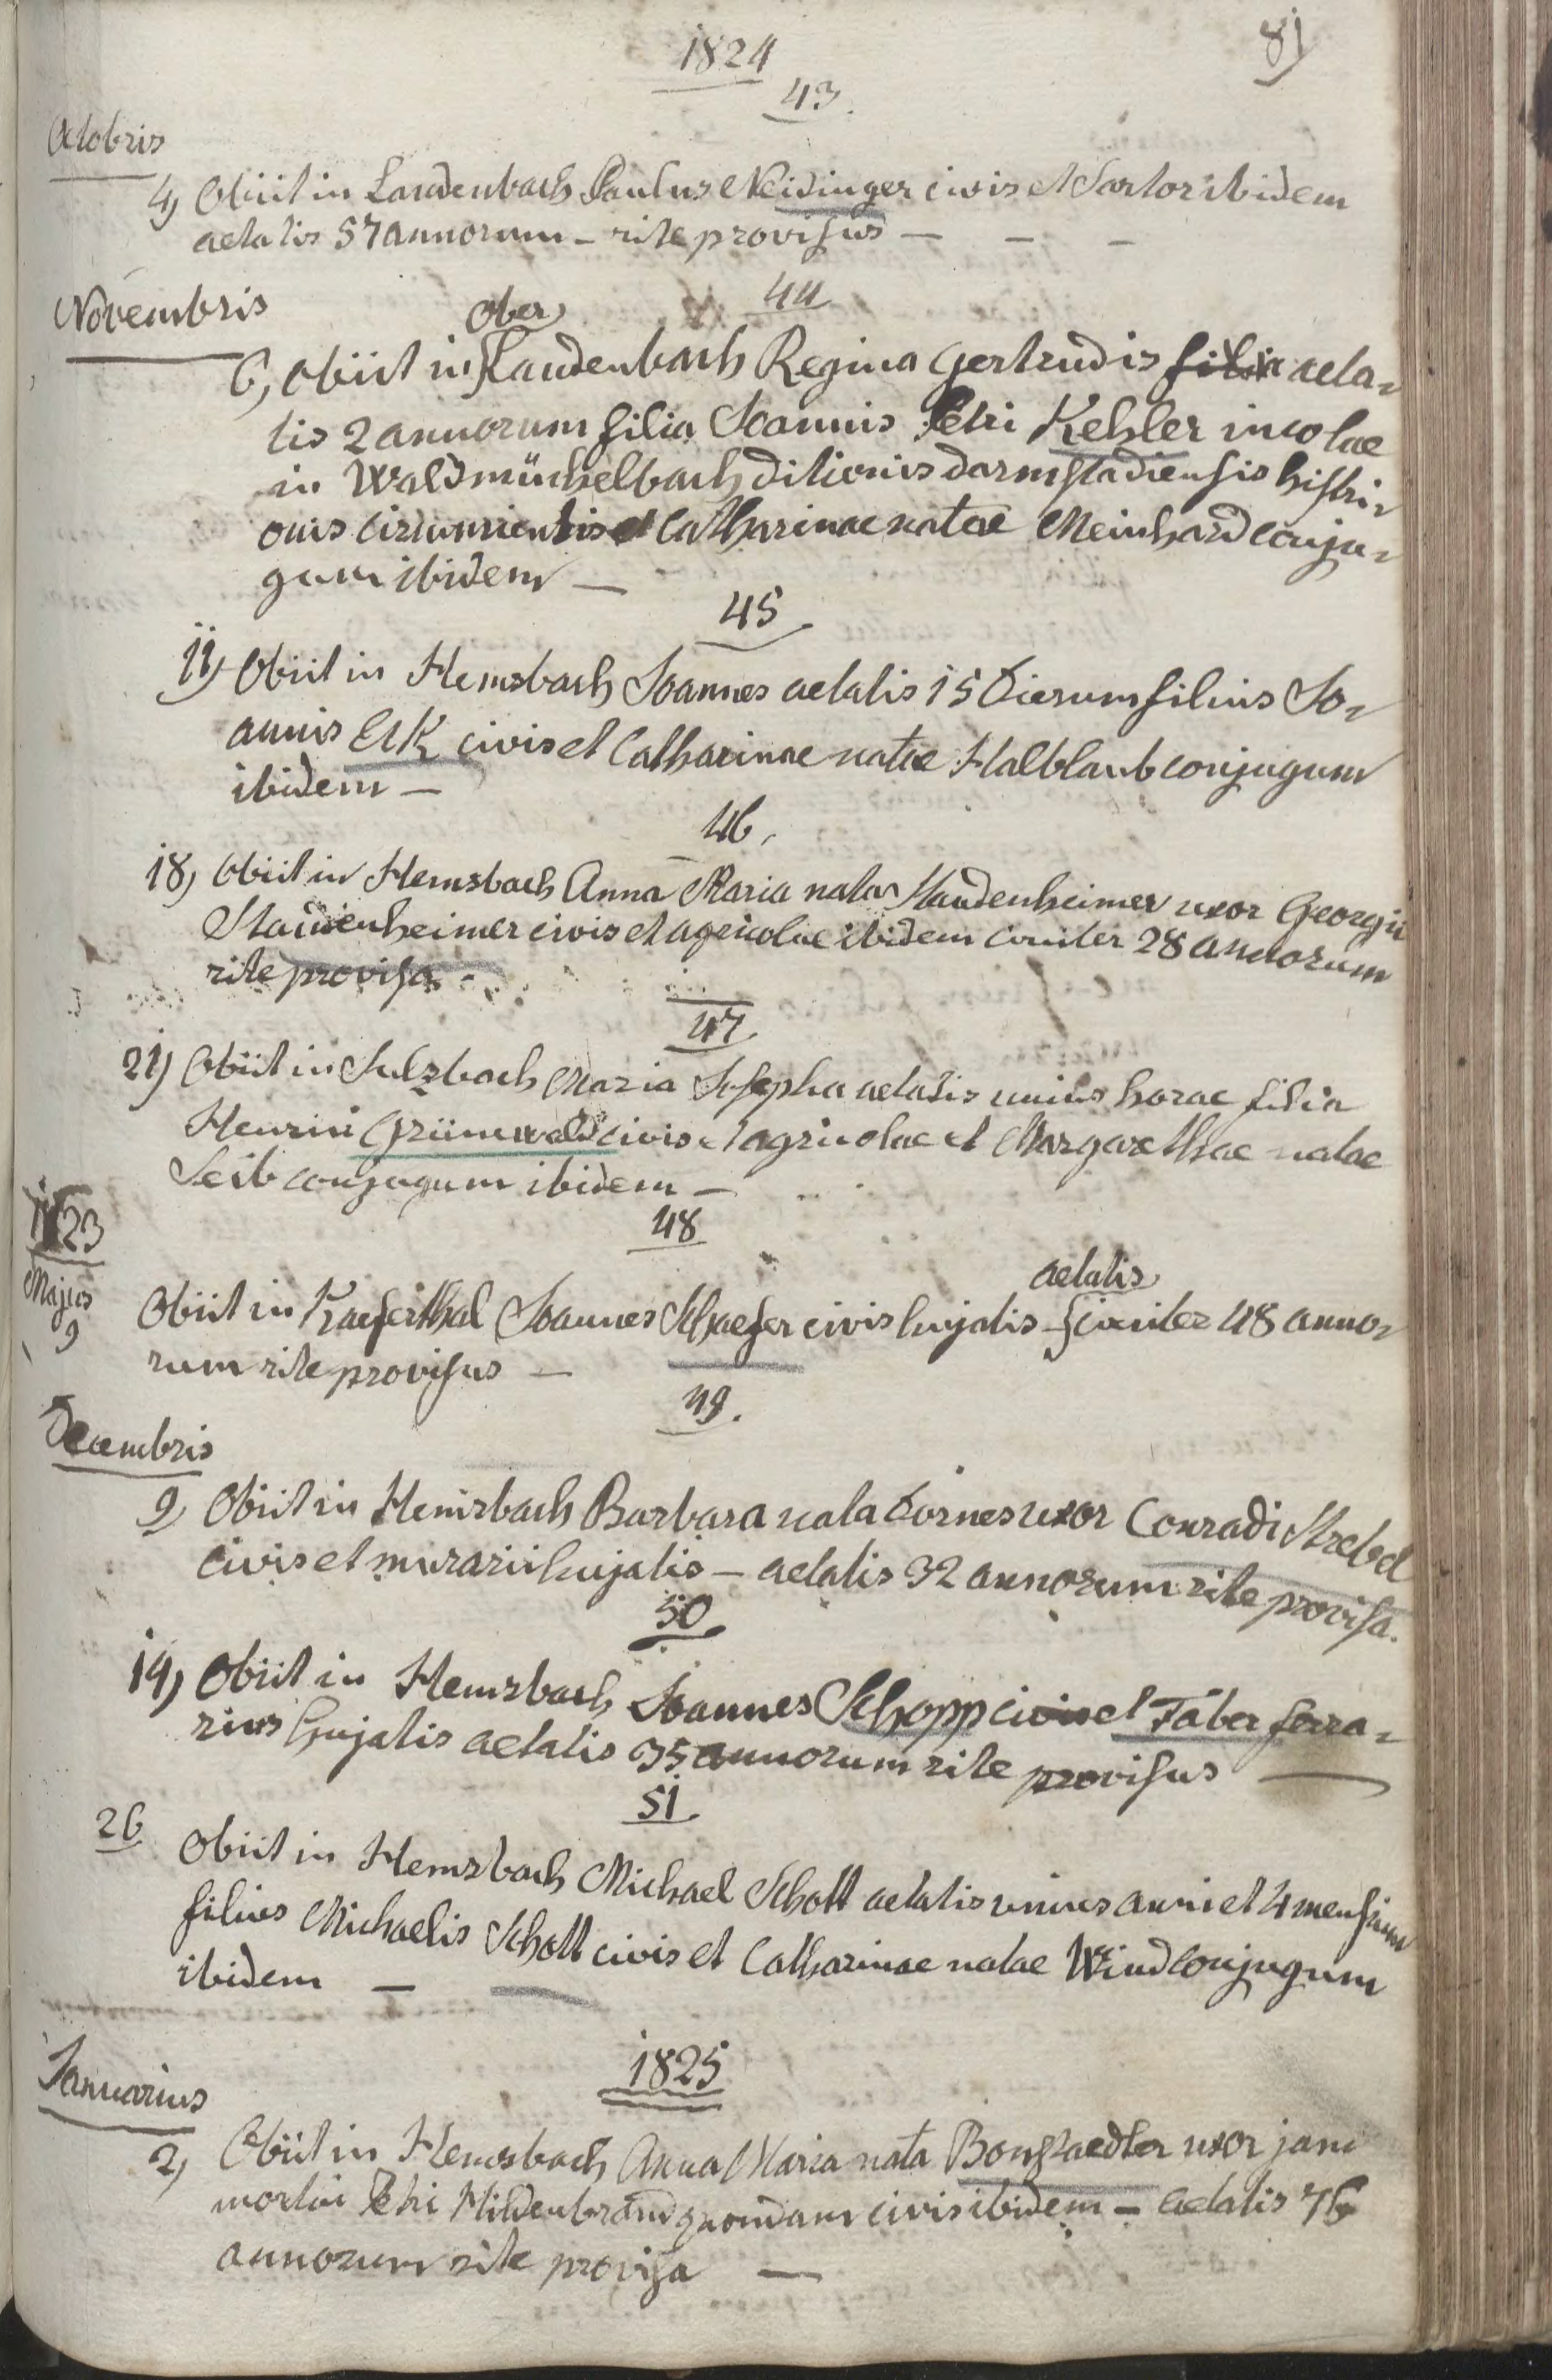 81
1824
43.
Octobris
4) Obiit in Laudenbach Paulus Neidinger civis et Sartor ibidem
aetatis 57 annorum – rite provisus – – –
44
Novembris
Ober
6, obiit in Laudenbach Regina Gertrudis filia aeta-
tis 2 annorum filia Joannis Petri Kehler incolae
in Waldmüchelbach ditionis darmstadiensis histri-
onis circumientis et Catharinae natae Meinhard conju-
gum ibidem –
45
11) Obiit in Hemsbach Joannes aetatis 15 dierum filius Jo-
annis Eck civis et Catharinae natae Halblaub conjugum
ibidem –
46.
18) Obiit in Hemsbach Anna Maria nata Maudenheimer uxor Georgii
Maudenheimer civis et agricolae ibidem circiter 28 annorum
rite provisa.
47.
21) Obiit in Sulzbach Maria Josepha aetatis unius horae filia
Henrici Grünewald civis et agricolae et Margarethae natae
Seib conjugum ibidem –
48
1823
Majus
9
aetatis
Obiit in Kaeferthal Joannes Schaefer civis hujatis circiter 48 anno-
rum rite provisus –
49.
Decembris
9) Obiit in Hemsbach Barbara nata Dornes uxor Conradi Strebel
civis et murarii hujatis – aetatis 32 annorum rite provisa.
50
14) Obiit in Hemsbach Joannes Schopp civis et Faber ferra-
rius hujatis aetatis 35 annorum rite provisus –
51.
26 Obiit in Hemsbach Michael Schott aetatis unius anni et 4 mensium
filius Michaelis Schott civis et Catharinae natae Wind conjugum
ibidem –
1825
Januarius
2) Obiit in Hemsbach Anna Maria nata Bongraedler uxor jam
mortui Petri Hildenbrand quondam civis ibidem – aetatis 76
annorum rite provisa –